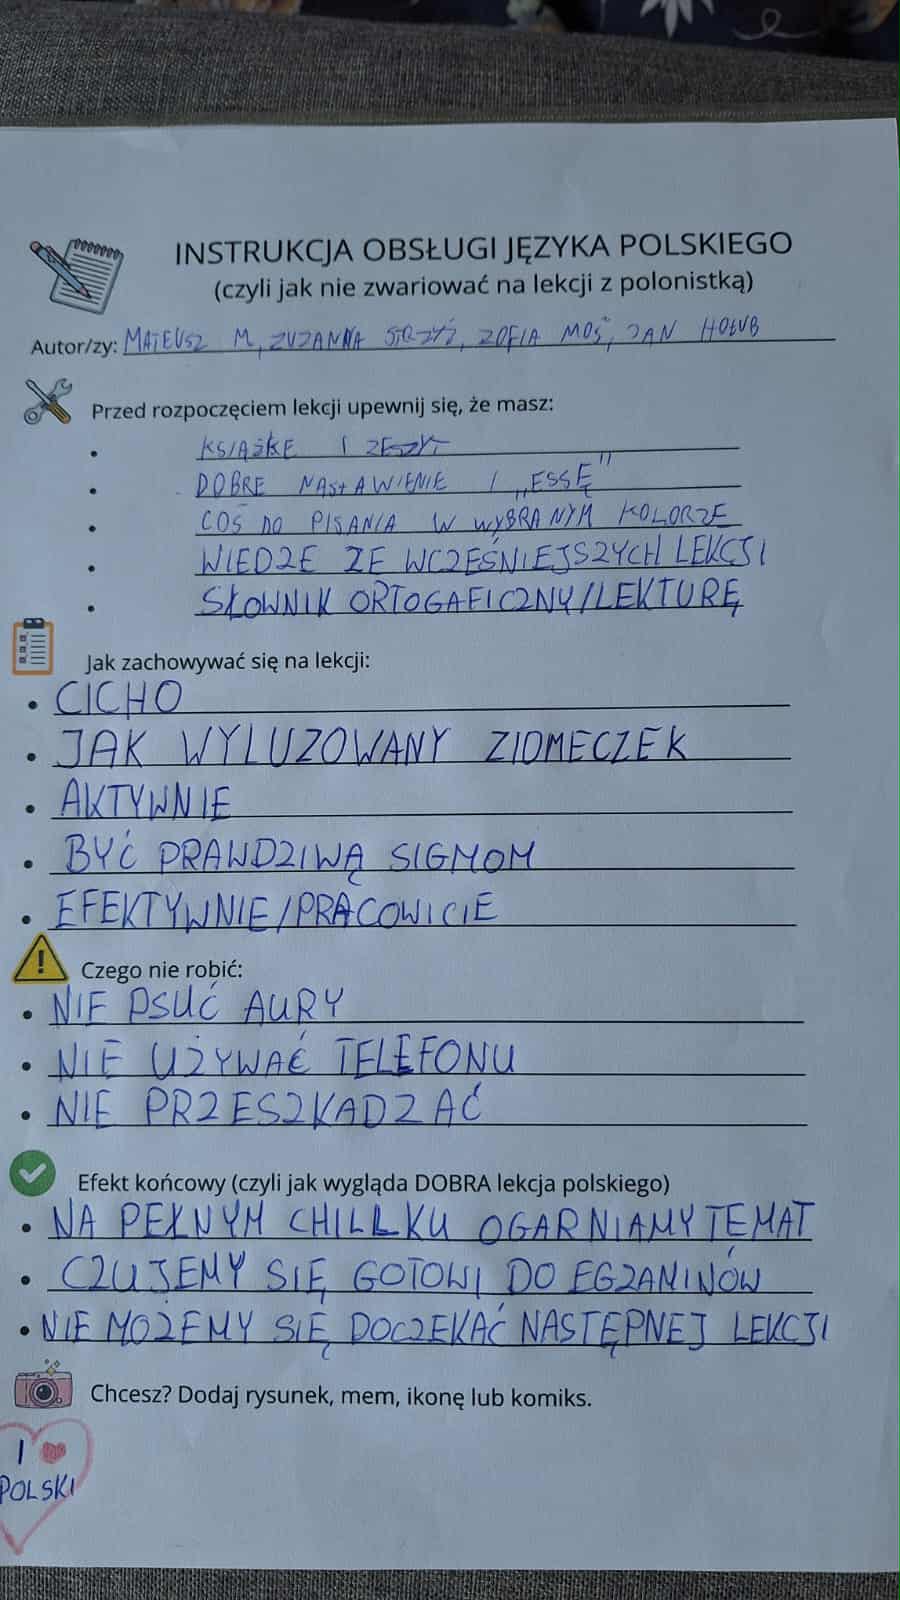 INSTRUKCJA OBSŁUGI JĘZYKA POLSKIEGO
(czyli jak nie zwariować na lekcji z polonistką)
Autor/zy: MATEUSZ M, ZUZANNA ZOFIA MOŚ, JAN HOŁUB
Przed rozpoczęciem lekcji upewnij się, że masz:
• KSIĄŻKE I ZESZYT
• DOBRE NASTAWIENIE I „ESSĘ"
• COŚ DO PISANIA W WYBRANYM KOLORZE
• WIEDZE ZE WCZEŚNIEJSZYCH LEKCJI
• SŁOWNIK ORTOGAFICZNY/LEKTURĘ
Jak zachowywać się na lekcji:
• CICHO
• JAK WYLUZOWANY ZIOMECZEK
• AKTYWNIE
• BYĆ PRAWDZIWĄ SIGMOM
• EFEKTYWNIE/PRACOWICIE
Czego nie robić:
• NIE PSUĆ AURY
• NIE UŻYWAĆ TELEFONU
• NIE PRZESZKADZAĆ
Efekt końcowy (czyli jak wygląda DOBRA lekcja polskiego)
• NA PEŁNYM CHILLKU OGARNIAMY TEMAT
• CZUJEMY SIĘ GOTOWI DO EGZAMINÓW
• NIE MOŻEMY SIĘ DOCZEKAĆ NASTĘPNEJ LEKCJI
Chcesz? Dodaj rysunek, mem, ikonę lub komiks.
I ❤
POLSKI